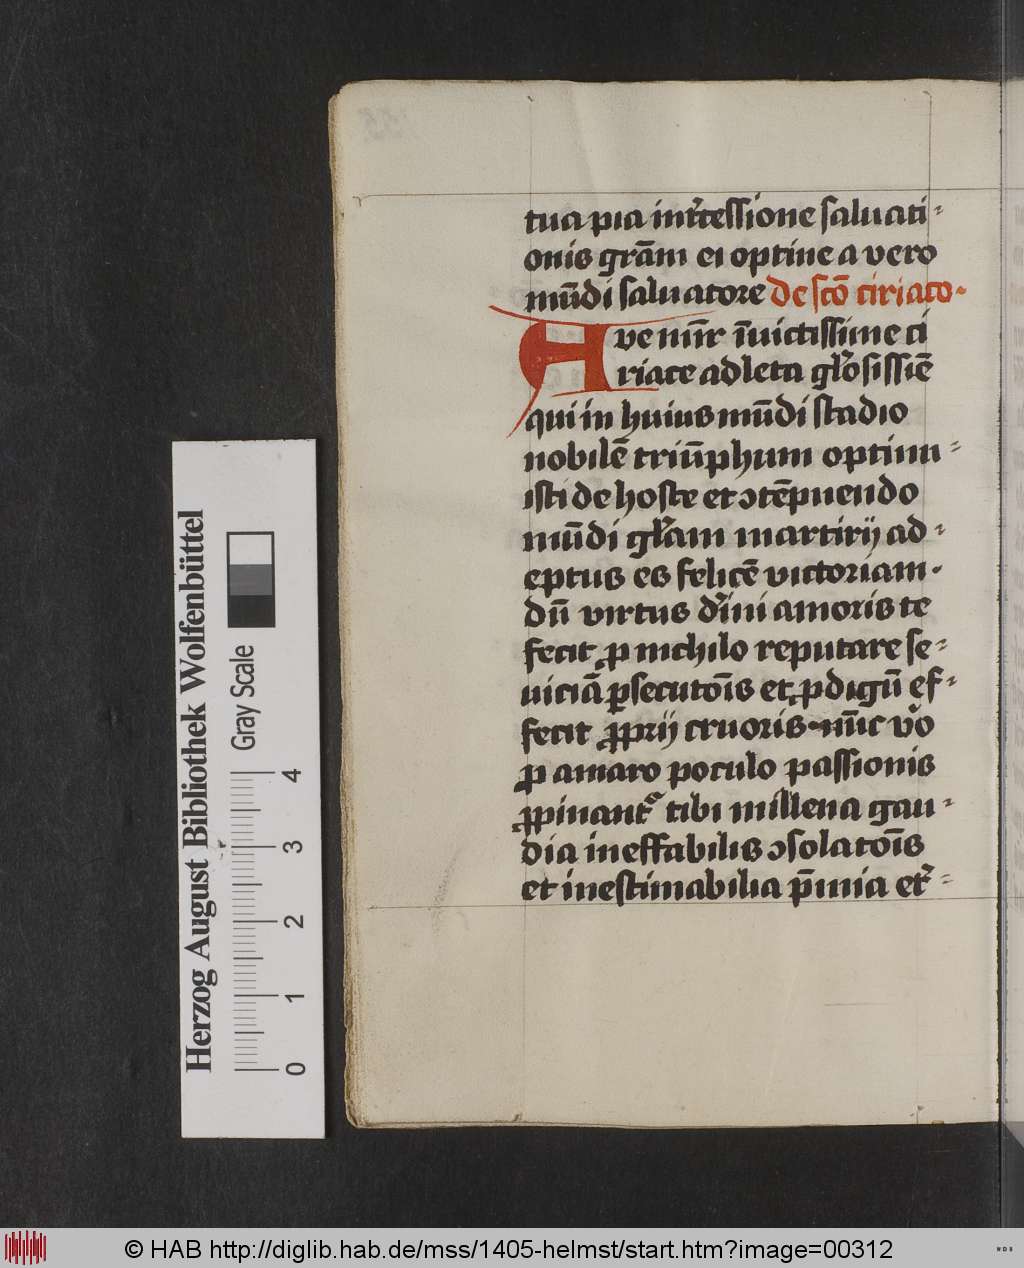 tua pia int̄cessione saluati-
onis grām ei optine a vero
mūdi saluatore de sc̄o ciriaco.
Ave m̄r īuictissime ci
riace adleta gl̄osissīe
qui in huius mūdi stadio
nobilē triūphum optinu-
isti de hoste et ↄtēpnendo
mūdi gl̄am martirij ad-
eptus es felicē victoriam.
dū virtus diu̅ini amoris te
fecit ꝓ nichilo reputare se-
uiciā ꝑsecuto̅is et ꝓdigū ef-
fecit ꝓprij cruoris nūc vo̊
ꝓ amaro poculo passionis
ꝓpinant᷑ tibi millena gau-
dia ineffabilis ↄsolato̅is
et inestimabilia p̄mia et̄-
Herzog August Bibliothek Wolfenbüttel
Gray Scale
0 1 2 3 4
© HAB http://diglib.hab.de/mss/1405-helmst/start.htm?image=00312